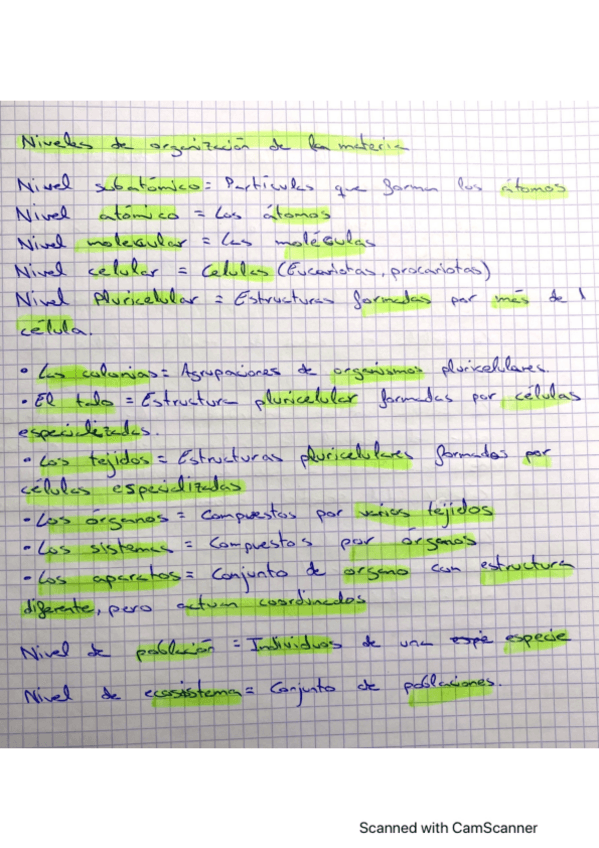 Niveles de organización de la materia
Nivel subatómico = Partículas que forman los átomos
Nivel atómico = Los átomos
Nivel molecular = Las moléculas
Nivel celular = Células (Eucariotas, procariotas)
Nivel Pluricelular = Estructuras formadas por más de 1
célula.
• Las colonias = Agrupaciones de organismos pluricelulares.
• El talo = Estructura pluricelular formadas por células
especializadas.
• Los tejidos = Estructuras pluricelulares formados por
células especializadas
• Los órganos = Compuestos por varios tejidos
• Los sistemas = Compuestos por órganos
• Los aparatos = Conjunto de organo con estructura
diferente, pero actuan coordinados
Nivel de población = Individuos de una especie
Nivel de ecosistema = Conjunto de poblaciones.
Scanned with CamScanner